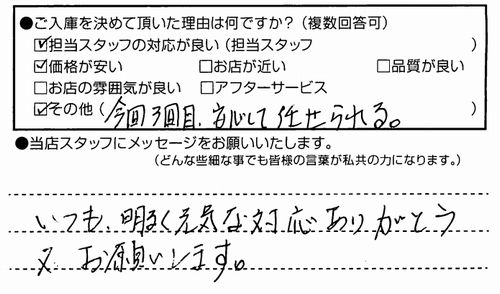 ●ご入庫を決めて頂いた理由は何ですか?(複数回答可)
☑担当スタッフの対応が良い(担当スタッフ )
☑価格が安い □お店が近い □品質が良い
□お店の雰囲気が良い □アフターサービス
☑その他(今回3回目、安心して任せられる。)
●当店スタッフにメッセージをお願いいたします。
(どんな些細な事でも皆様の言葉が私共の力になります。)
いつも、明るく元気な対応ありがとう
又、お願いします。